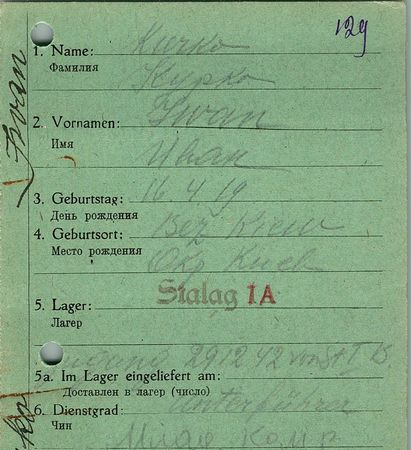 129
1. Name: Kurko
Фамилия Курко
2. Vornamen: Iwan
Имя Иван
3. Geburtstag: 16 4 19
День рождения
4. Geburtsort: Bez Kiew
Место рождения Окр Киев
Stalag IA
5. Lager:
Лагер
29 12 42
5a. Im Lager eingeliefert am:
Доставлен в лагер (число)
6. Dienstgrad:
Чин
Iwan